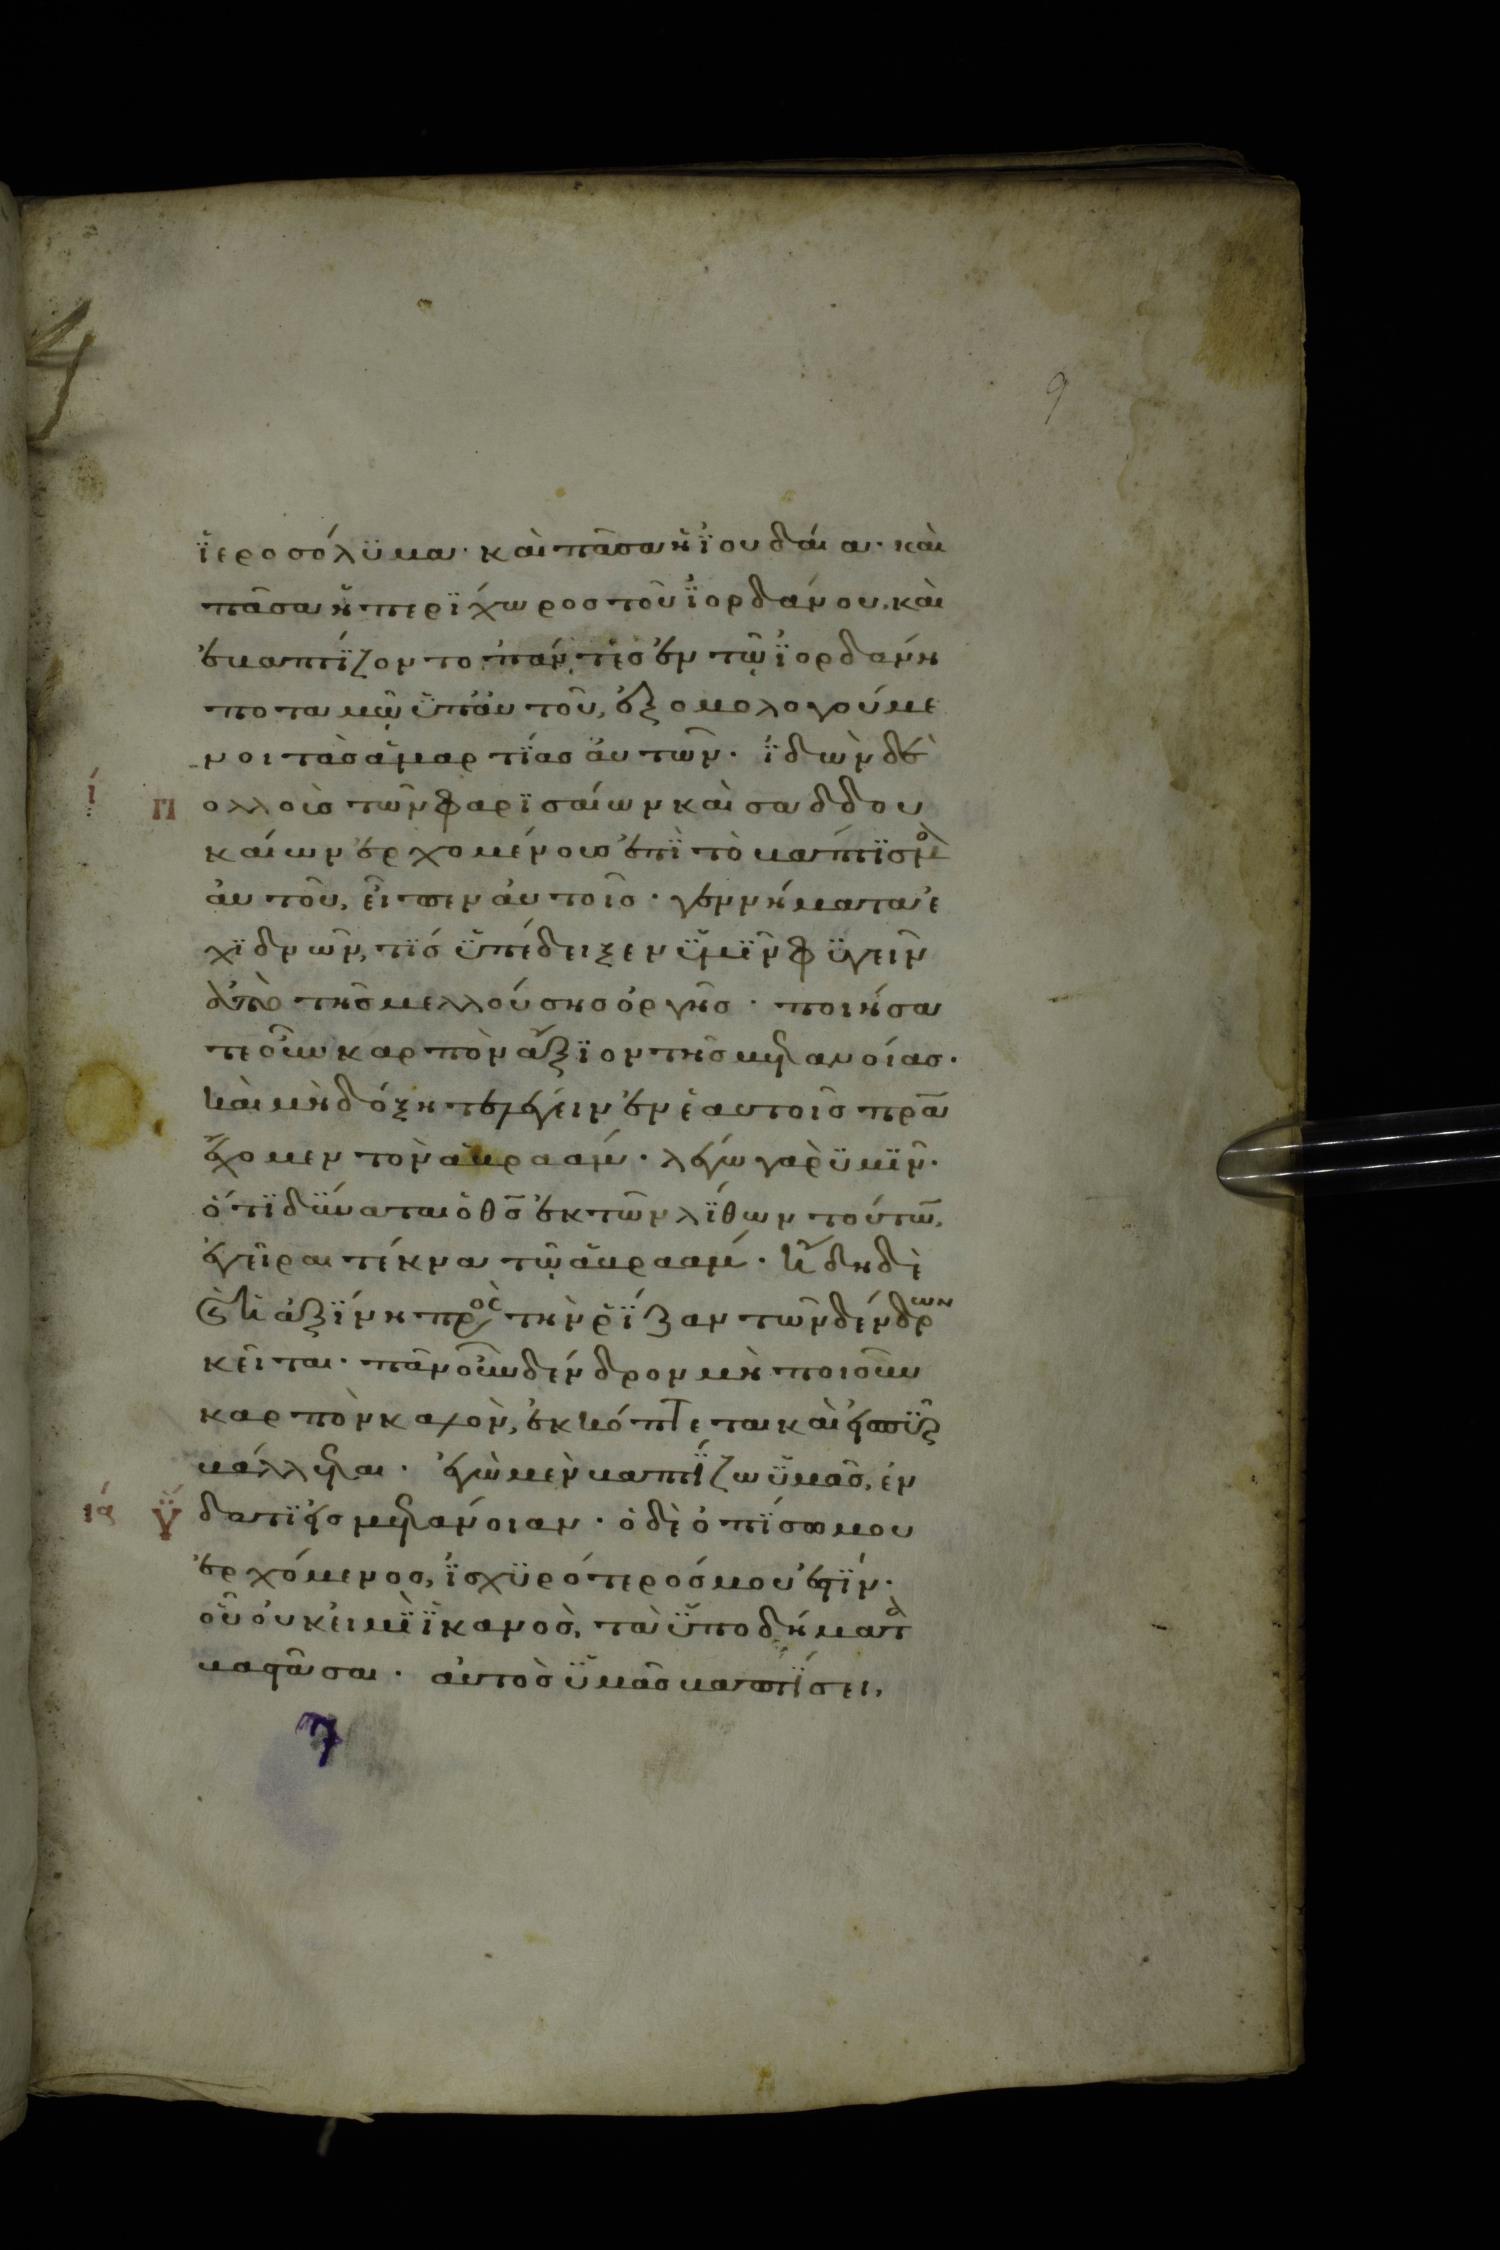 9
ἱεροσόλϋμα· καὶ πᾶσα ἡ ϊουδαία· καὶ
πᾶσα ἡ περίχωρος τοῦ ϊορδάνου, καὶ
ἐβαπτίζοντο πάντες ἐν τῷ ϊορδάνη
ποταμῷ ὑπ' αὐτοῦ, ἐξομολογούμε
νοι τὰς ἁμαρτίας αὐτῶν· ϊδὼν δὲ
ί Π ολλοὺς τῶν φαρισαίων καὶ σαδδου
καίων ἐρχομένους ἐπὶ τὸ βάπτισμα
αὐτοῦ, εἶπεν αὐτοῖς· γεννήματα ἐ
χϊδνῶν, τίς ὑπέδειξεν ὑμῖν φϋγεῖν
ἀπὸ τῆς μελλούσης ὀργῆς· ποιήσα
τε οὖν καρπὸν ἄξϊον τῆς μετανοίας·
καὶ μὴ δόξητε λέγειν ἐν ἑαυτοῖς πρα
ἔχομεν τὸν ἀβραάμ· λέγω γὰρ ὑμῖν·
ὅτι δύναται ὁ θς ἐκ τῶν λίθων τούτω̅,
ἐγεῖραι τέκνα τῷ ἀβραάμ· ἤδη δὲ
καὶ ἡ ἀξίνη πρὸς τὴν ῥίζαν τῶν δένδρων
κεῖται· πᾶν οὖν δένδρον μὴ ποιοῦν
καρπὸν καλὸν, ἐκκόπτεται καὶ εἰς πῦρ
βάλλεται· ἐγὼ μὲν βαπτίζω ὑμᾶς, ἐν
ιά Ὕ δατι εἰς μετάνοιαν· ὁ δὲ ὀπίσω μου
ἐρχόμενος, ἰσχϋρότερός μου ἐστϊν·
οὗ οὐκ εἰμὶ ἱκανὸς, τὰ ὑποδήματα
βαστάσαι· αὐτὸς ὑμᾶς βαπτίσει,
7